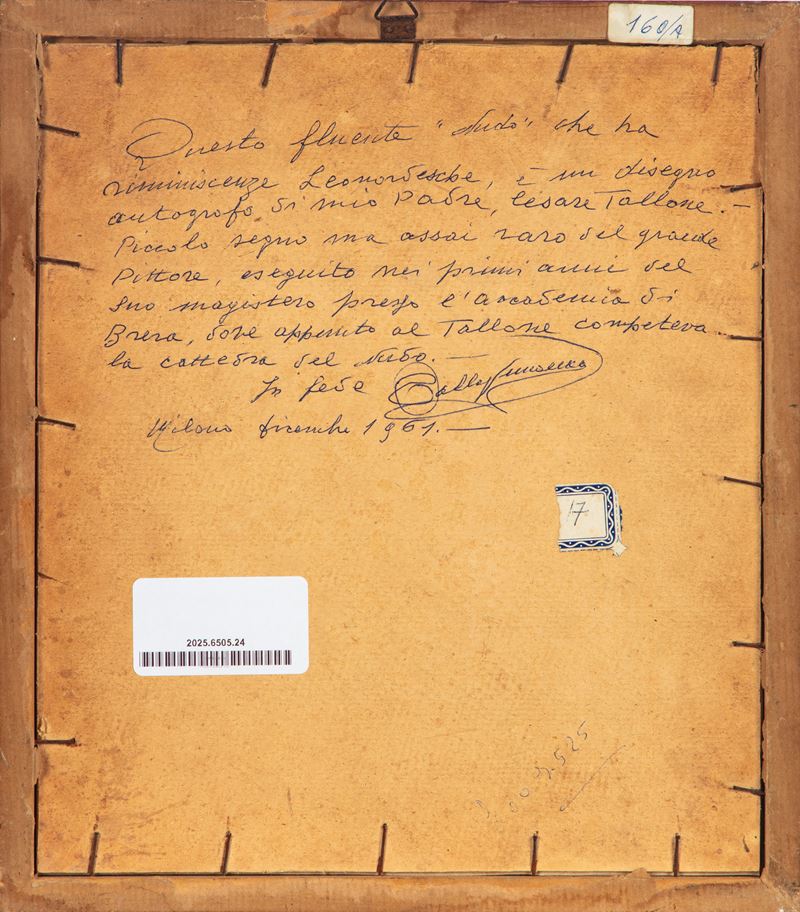 160/A
Questo fluente "Nudo" che ha
riminiscenze Leonardesche, è un disegno
autografo di mio Padre, Cesare Tallone. —
Piccolo segno ma assai raro del grande
Pittore, eseguito nei primi anni del
suo magistero presso l'accademia di
Brera, dove appunto al Tallone competeva
la cattedra del Nudo. —
In fede
Milano dicembre 1961. —
17
2025.6505.24